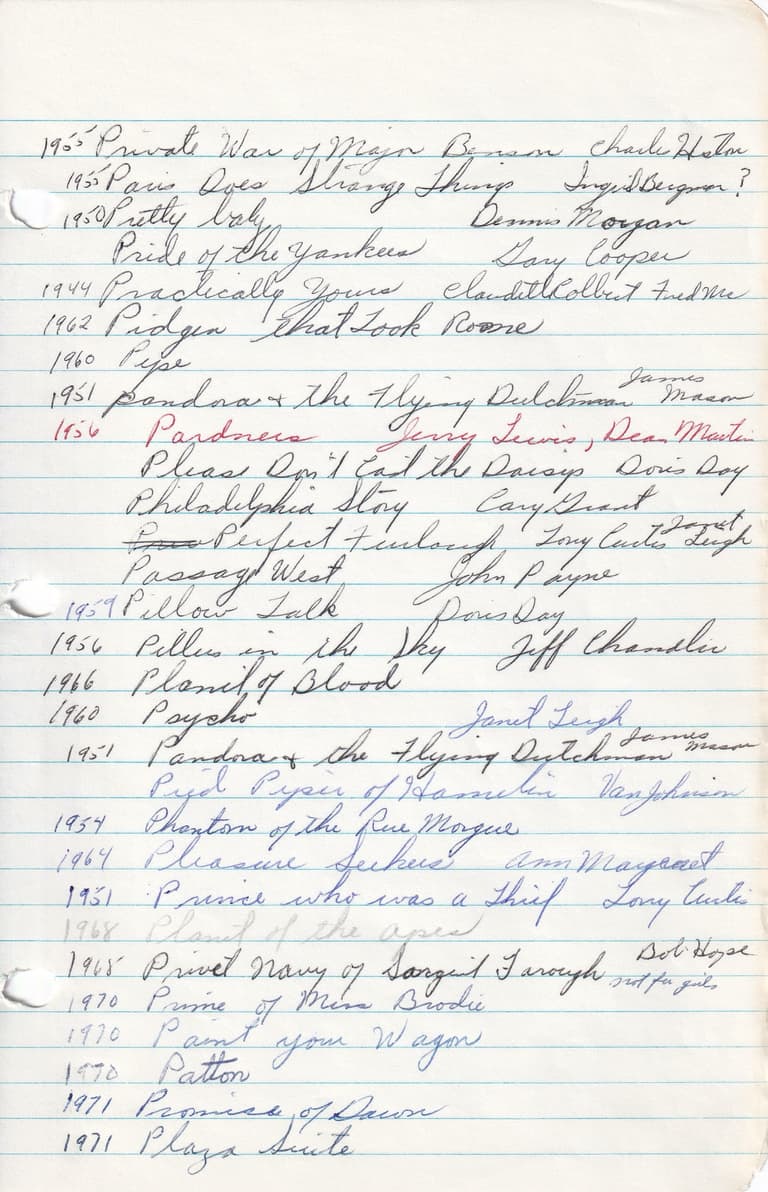 1955 Private War of Major Benson Charle Hston
1955 Paris Does Strange Things Ingrid Bergman?
1950 Pretty baby Dennis Morgan
Pride of the Yankees Gary Cooper
1944 Practically Yours Claudett Colbert Fred Mc
1962 Pidgen that Took Rome
1960 Pepe
1951 pandora & the Flying Dutchman James Mason
1956 Pardners Jerry Lewis, Dean Martin
Please Don't Eat the Daisys Doris Day
Philadelphia Story Cary Grant
Perfect Furlough Tony Curtis Janet Leigh
Passage West John Payne
1959 Pillow Talk Doris Day
1956 Pillers in the Sky Jeff Chandler
1966 Planit of Blood
1960 Psycho Janet Leigh
1951 Pandora & the Flying Dutchman James Mason
Pied Pyper of Hamelin Van Johnson
1954 Phantom of the Rue Morgue
1964 Pleasure Seekers Ann Margaret
1951 Prince who was a Thief Tony Curtis
1968 Planit of the apes
1968 Privet Navy of Sargent Farough Bob Hope
not for girls
1970 Prime of Miss Brodie
1970 Paint your Wagon
1970 Patton
1971 Promise of Dawn
1971 Plaza Suite